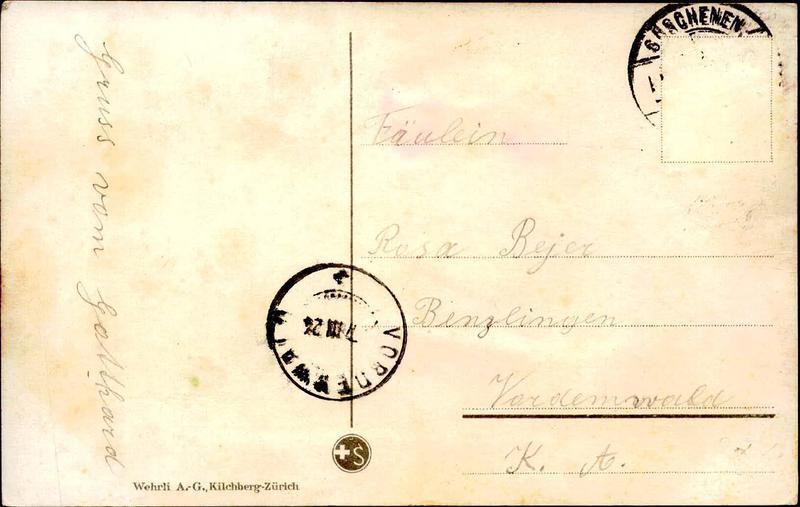 Gruss vom Gotthard
GÖSCHENEN
Fäulein
Rosa Bejer
Benzlingen
Vordemwald
K. A.
VORDEMWALD
7 III 24
S
Wehrli A.-G., Kilchberg-Zürich